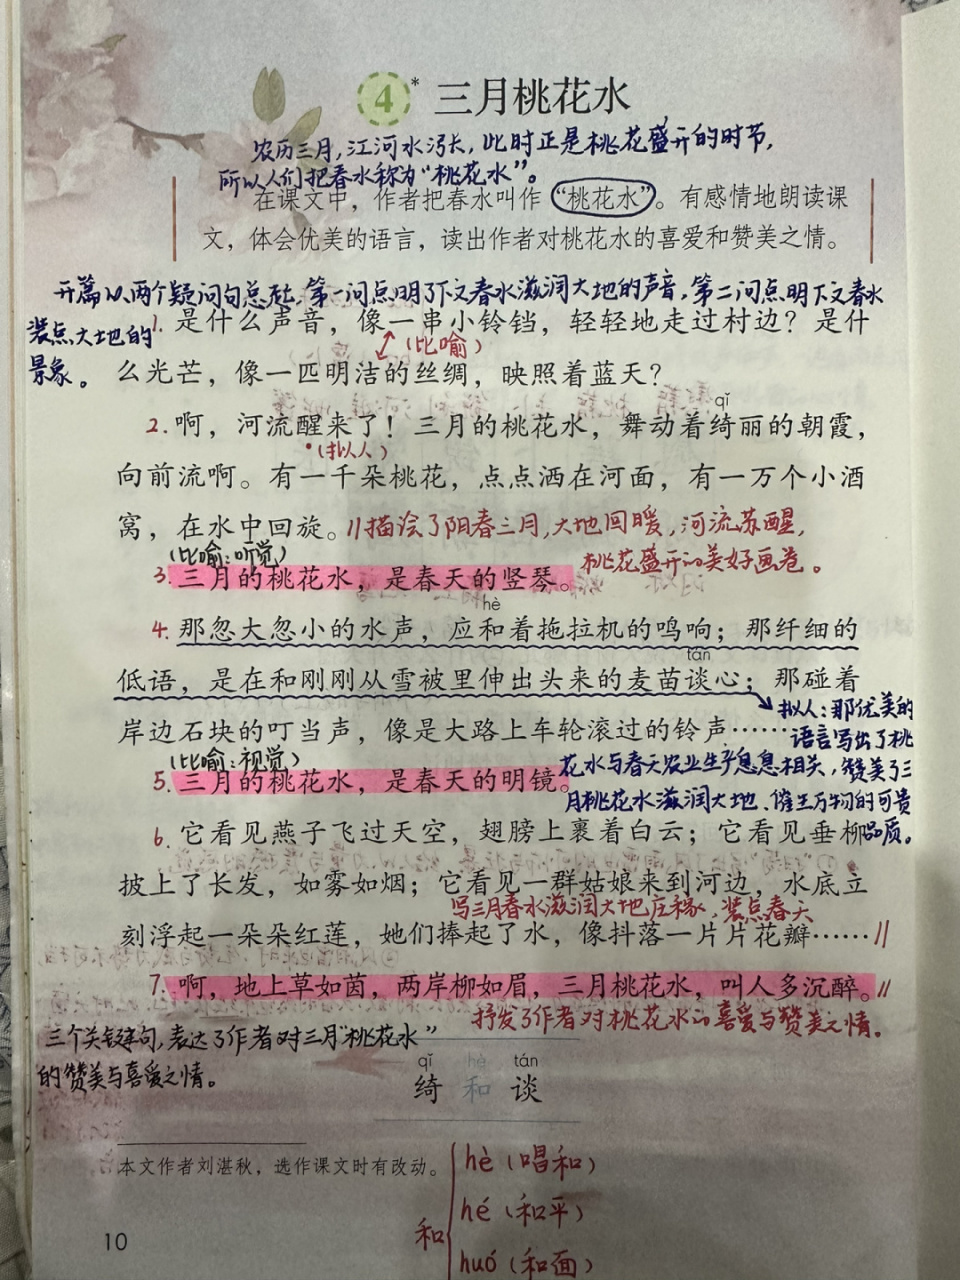 4* 三月桃花水
农历三月,江河水污长,此时正是桃花盛开的时节,
所以人们把春水称为“桃花水”。
在课文中，作者把春水叫作“桃花水”。有感情地朗读课
文，体会优美的语言，读出作者对桃花水的喜爱和赞美之情。
开篇以两个疑问句总起,第一问点明了下文春水滋润大地的声音,第二问点明下文春水
装点大地的
景象。
1. 是什么声音，像一串小铃铛，轻轻地走过村边？是什
(比喻)
么光芒，像一匹明洁的丝绸，映照着蓝天？
qǐ
2. 啊，河流醒来了！三月的桃花水，舞动着绮丽的朝霞，
(拟人)
向前流啊。有一千朵桃花，点点洒在河面，有一万个小酒
窝，在水中回旋。//描绘了阳春三月,大地回暖,河流苏醒,
桃花盛开的美好画卷。
(比喻:听觉)
3. 三月的桃花水，是春天的竖琴。
hè
4. 那忽大忽小的水声，应和着拖拉机的鸣响；那纤细的
tán
低语，是在和刚刚从雪被里伸出头来的麦苗谈心；那碰着
岸边石块的叮当声，像是大路上车轮滚过的铃声……
拟人:那优美的
语言写出了桃
花水与春天农业生产息息相关,赞美了三
月桃花水滋润大地、催生万物的可贵
品质。
(比喻:视觉)
5. 三月的桃花水，是春天的明镜。
6. 它看见燕子飞过天空，翅膀上裹着白云；它看见垂柳
披上了长发，如雾如烟；它看见一群姑娘来到河边，水底立
写三月春水滋润大地庄稼,装点春天
刻浮起一朵朵红莲，她们捧起了水，像抖落一片片花瓣……//
7. 啊，地上草如茵，两岸柳如眉，三月桃花水，叫人多沉醉。//
抒发了作者对桃花水的喜爱与赞美之情。
三个关键句,表达了作者对三月“桃花水”
的赞美与喜爱之情。
qǐ hè tán
绮 和 谈
本文作者刘湛秋，选作课文时有改动。
和
hè (唱和)
hé (和平)
huó (和面)
10